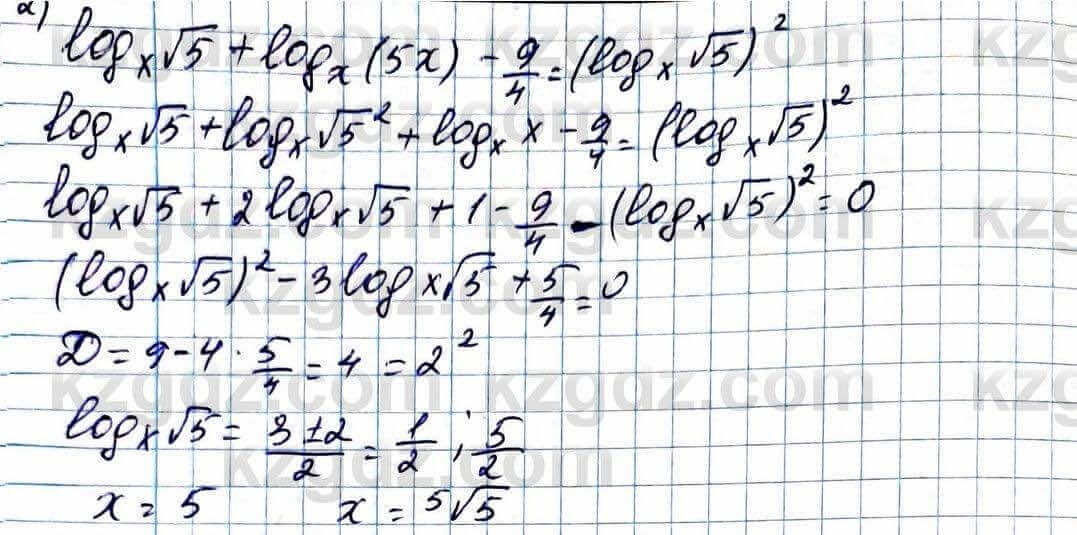 а) log_x √5 + log_x (5x) - 9/4 = (log_x √5)²
log_x √5 + log_x √5² + log_x x - 9/4 = (log_x √5)²
log_x √5 + 2 log_x √5 + 1 - 9/4 - (log_x √5)² = 0
(log_x √5)² - 3 log_x √5 + 5/4 = 0
D = 9 - 4 · 5/4 = 4 = 2²
log_x √5 = (3 ± 2)/2 = 1/2 ; 5/2
x = 5 x = ⁵√5
kzgdz.com